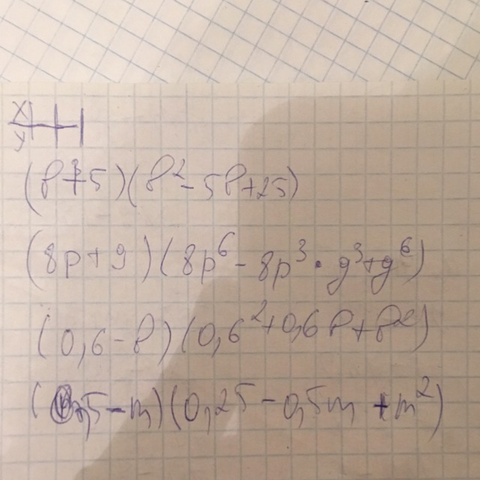 x
y
(b+5)(b²-5b+25)
(8p+g)(8p⁶-8p³·g³+g⁶)
(0,6-b)(0,6²+0,6b+b²)
(0,5-m)(0,25-0,5m+m²)